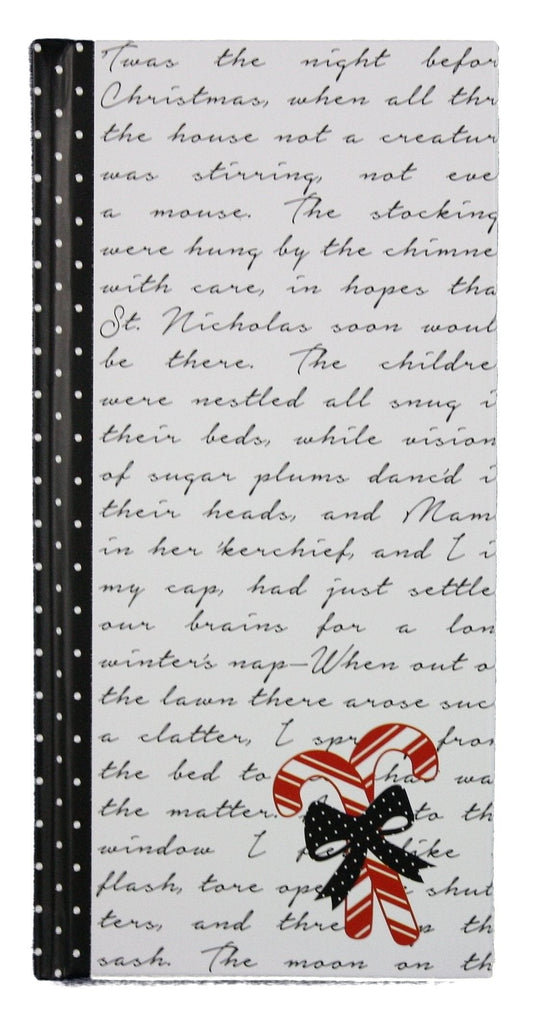 'Twas the night befor
Christmas, when all thr
the house not a creatur
was stirring, not eve
a mouse. The stocking
were hung by the chimne
with care, in hopes tha
St. Nicholas soon woul
be there. The childre
were nestled all snug i
their beds, while vision
of sugar plums danc'd i
their heads, and Mam
in her 'kerchief, and I i
my cap, had just settle
our brains for a lon
winter's nap—When out o
the lawn there arose suc
a clatter, I spr from
the bed to ha wa
the matter. A to th
window I fle like
flash, tore ope shut
ters, and thre p th
sash. The moon on th